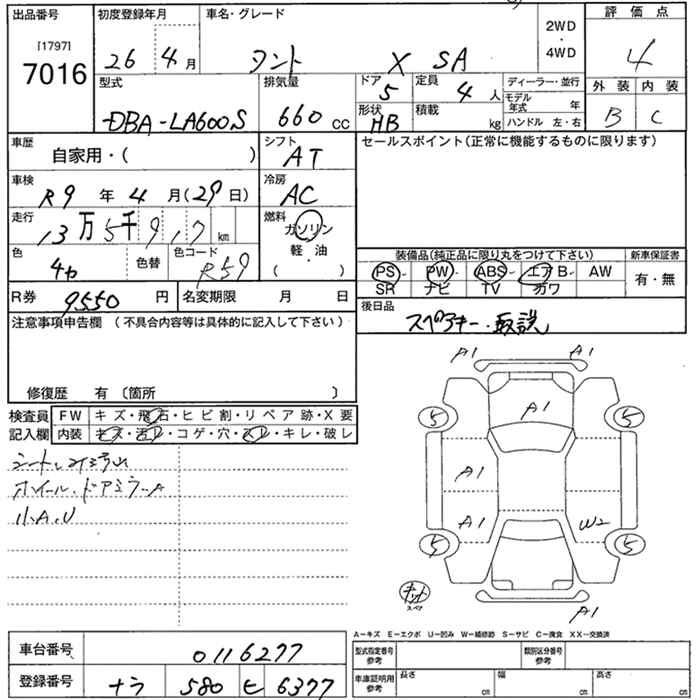 出品番号 初度登録年月 車名・グレード 2WD・4WD 評価点
[1797]
7016 26年4月 タント X SA 4
型式 排気量 ドア 5 定員 4人 ディーラー・並行 外装 内装
DBA-LA600S 660cc 形状 HB 積載 kg モデル年式 年 B C
ハンドル 左・右
車歴 自家用・( ) シフト AT セールスポイント(正常に機能するものに限ります)
車検 R9年4月(29日) 冷房 AC
走行 13万5千9 km 燃料 ガソリン
軽・油
( )
色 色替 色コード R59 装備品(純正品に限り丸をつけて下さい) 新車保証書
PS PW ABS エアB AW 有・無
SR ナビ TV カワ
R券 9550円 名変期限 月 日 後日品
スペアキー・取説
注意事項申告欄(不具合内容等は具体的に記入して下さい)
修復歴 有 〔箇所 〕
検査員 FW キズ・飛石・ヒビ割・リペア跡・X要
記入欄 内装 キズ・汚レ・コゲ・穴・スレ・キレ・破レ
ホイール・ドアミラーA
小A.U
A1 A1
5 A1 5
A1
A1 W2
5 5
スペア A1
A－キズ E－エクボ U－凹み W－補修跡 S－サビ C－腐食 XX－交換済
車台番号 0116277 型式指定番号 参考 類別区分番号 参考
登録番号 ナラ 580 ヒ 6377 車庫証明用 参考 長さ cm 幅 cm 高さ cm